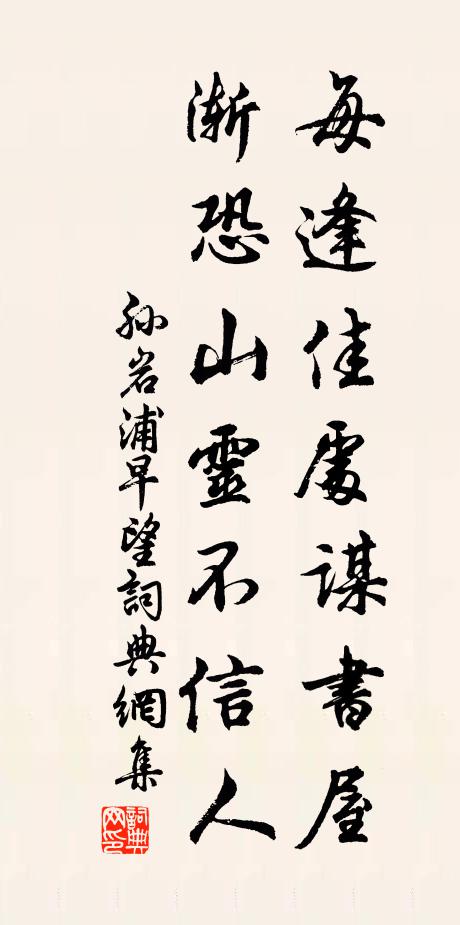 每逢佳處謀書屋
漸恐山靈不信人
孙岩浦早望詞典網集
詞典网印